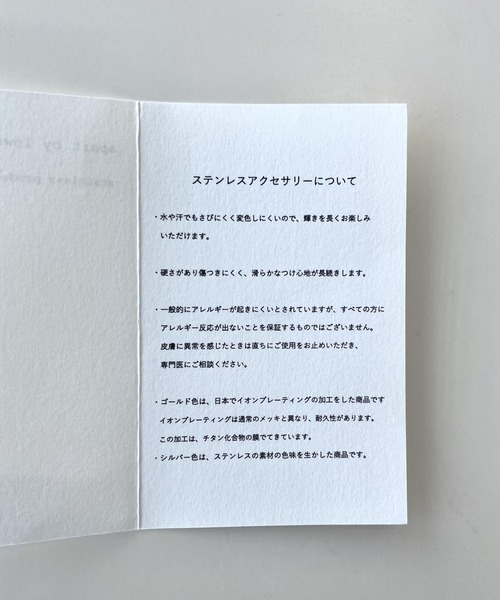 ステンレスアクセサリーについて
・水や汗でもさびにくく変色しにくいので、輝きを長くお楽しみ
いただけます。
・硬さがあり傷つきにくく、滑らかなつけ心地が長続きします。
・一般的にアレルギーが起きにくいとされていますが、すべての方に
アレルギー反応が出ないことを保証するものではございません。
皮膚に異常を感じたときは直ちにご使用をお止めいただき、
専門医にご相談ください。
・ゴールド色は、日本でイオンプレーティングの加工をした商品です
イオンプレーティングは通常のメッキと異なり、耐久性があります。
この加工は、チタン化合物の膜でできています。
・シルバー色は、ステンレスの素材の色味を生かした商品です。